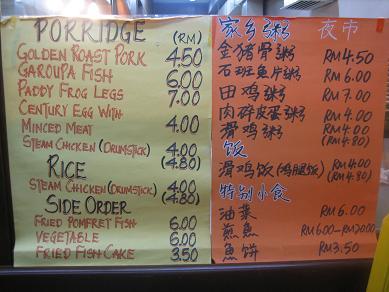 PORRIDGE (RM)
GOLDEN ROAST PORK 4.50
GAROUPA FISH 6.00
PADDY FROG LEGS 7.00
CENTURY EGG WITH
MINCED MEAT 4.00
STEAM CHICKEN (DRUMSTICK) 4.00 (4.80)
RICE
STEAM CHICKEN (DRUMSTICK) 4.00 (4.80)
SIDE ORDER
FRIED POMFRET FISH 6.00
VEGETABLE 6.00
FRIED FISH CAKE 3.50
家乡粥 夜市
金猪骨粥 RM 4.50
石班鱼片粥 RM 6.00
田鸡粥 RM 7.00
肉碎皮蛋粥 RM 4.00
滑鸡粥 RM 4.00 (RM 4.80)
饭
滑鸡饭(鸡腿饭) RM 4.00 (RM 4.80)
特别小食
油菜 RM 6.00
煎魚 RM 6.00-RM 20.00
魚饼 RM 3.50